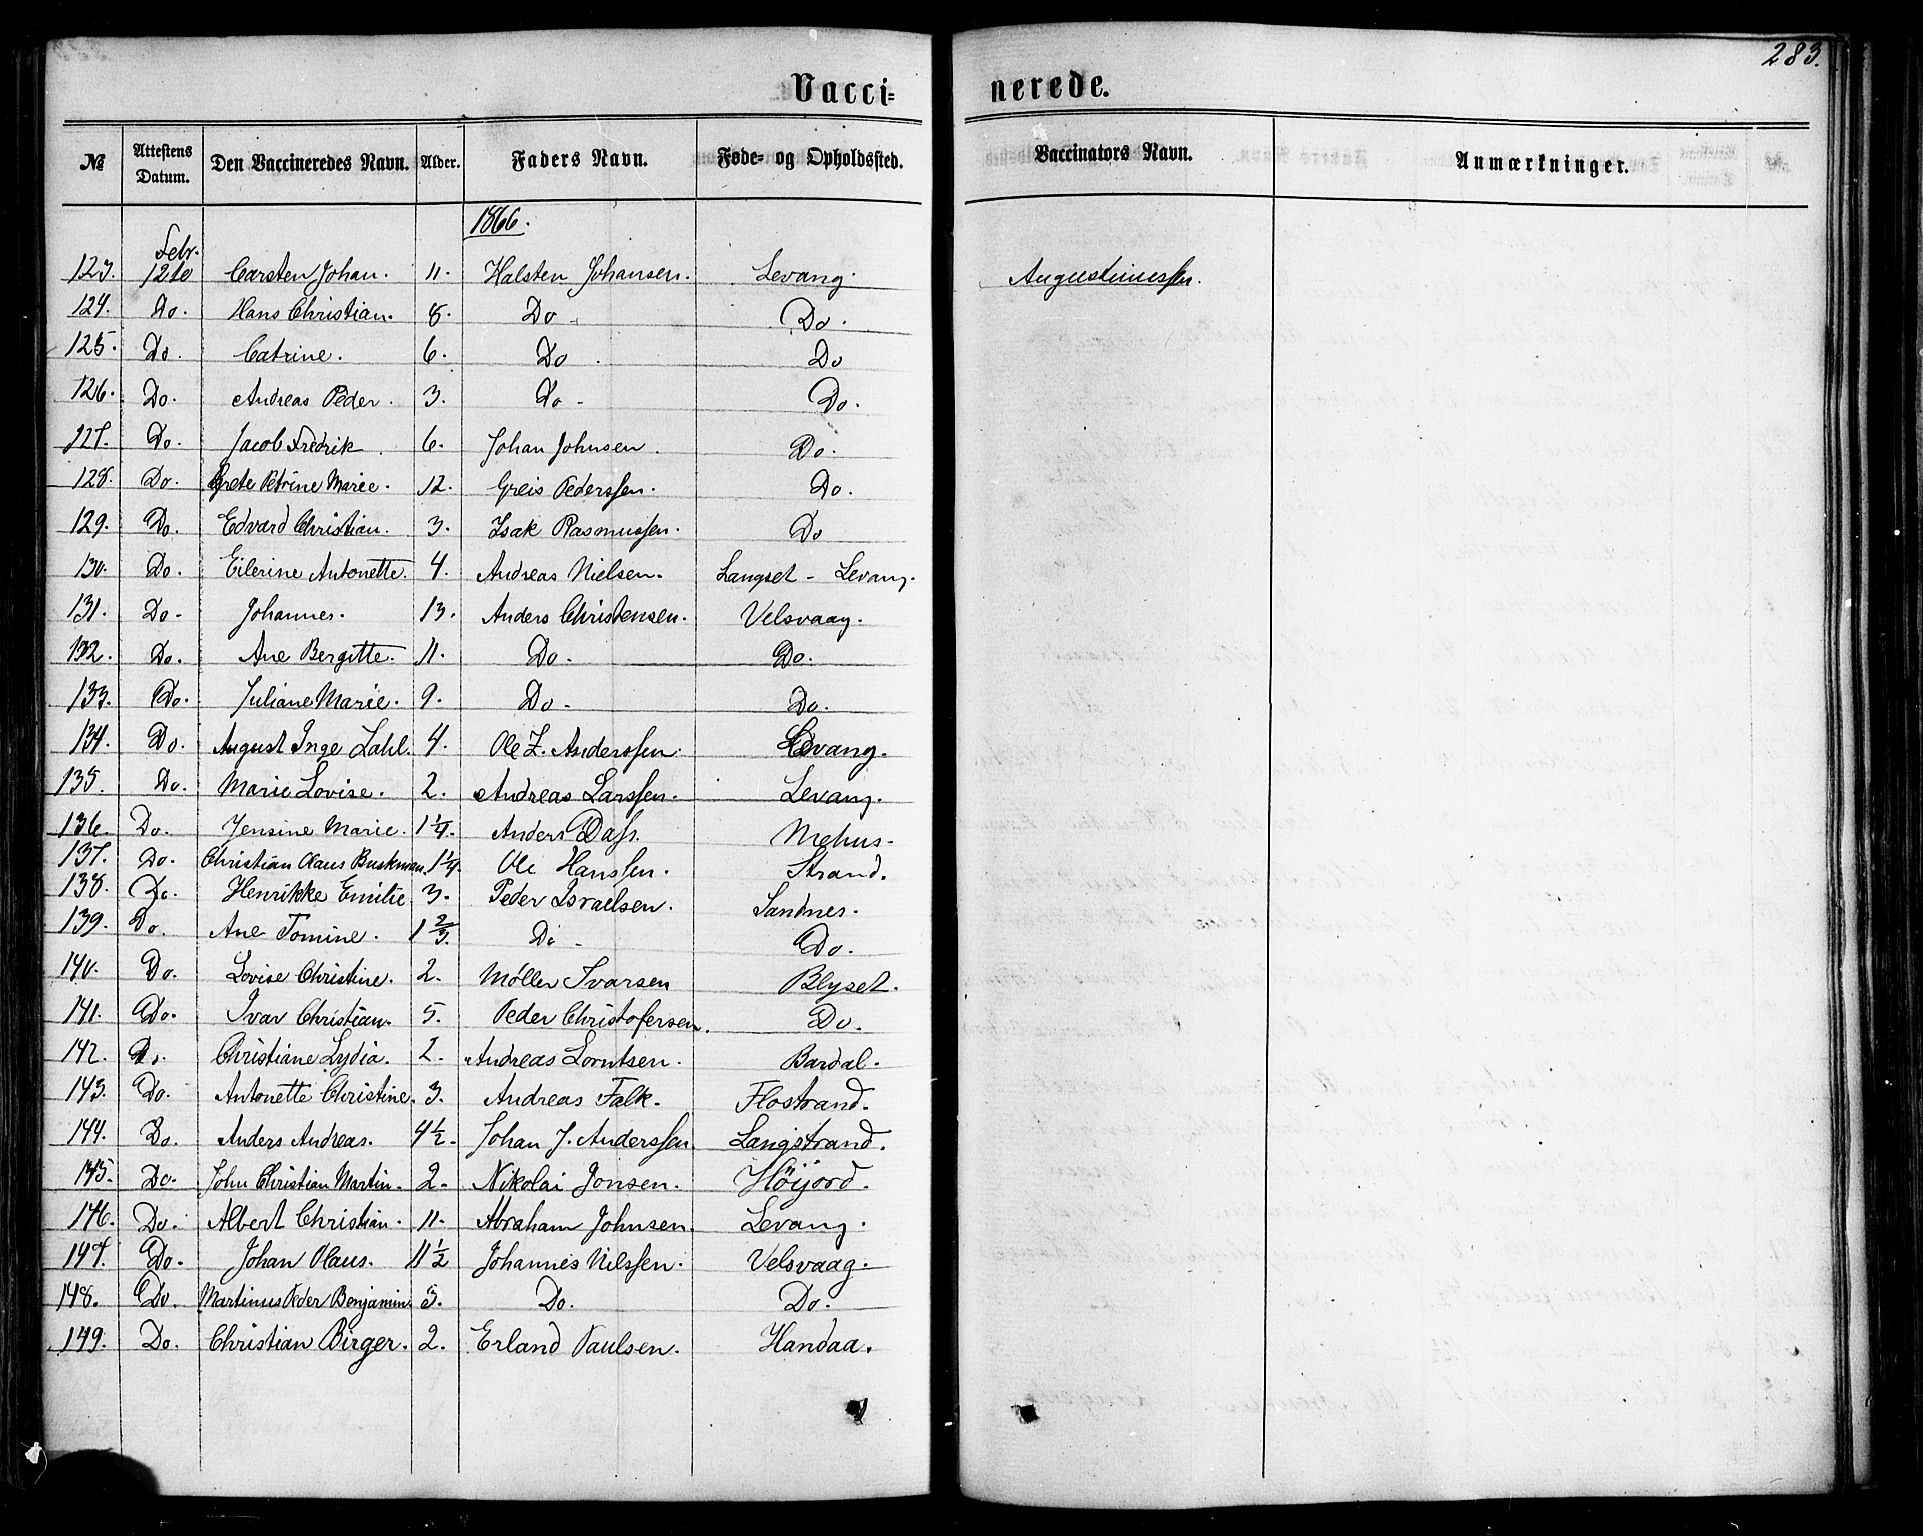 283.
Vacci=nerede.
№ Attestens Datum. Den Vaccineredes Navn. Alder. Faders Navn. Føde- og Opholdssted. Vaccinators Navn. Anmærkninger.
1866.
Febr.
123. 12te Carsten Johan. 11. Halsten Johansen. Levang. Augustinussen.
124. Do. Hans Christian. 8. Do. Do.
125. Do. Catrine. 6. Do. Do
126. Do. Andreas Peder. 3. Do. Do.
127. Do. Jacob Fredrik. 6. Johan Johnsen. Do.
128. Do. Grete Petrine Marie. 12. Greis Pederssen. Do.
129. Do. Edvard Christian. 3. Isak Rasmussen. Do
130. Do. Eilerine Antonette. 4. Andreas Nielsen. Langset - Levang.
131. Do. Johannes. 13. Anders Christensen. Velsvaag.
132. Do. Ane Bergitte. 11. Do. Do.
133. Do. Juliane Marie. 9. Do. Do.
134. Do. August Inge Zahl. 4. Ole Z. Anderssen. Levang.
135. Do. Marie Lovise. 2. Andreas Larssen. Levang.
136. Do. Jensine Marie. 1 1/4. Anders Dass. Mehus.
137. Do. Christian Olaus Buskman. 1 1/4. Ole Hanssen. Strand.
138. Do. Henrikke Emilie. 3. Peder Israelsen. Sandnes.
139. Do. Ane Tomine. 1 2/3. Do. Do.
140. Do. Lovise Christine. 2. Møller Ivarsen Blyset.
141. Do. Ivar Christian. 5. Peder Christofersen. Do.
142. Do. Christiane Lydia. 2. Andreas Lorntsen. Bardal.
143. Do. Antonette Christine. 3. Andreas Falk. Flostrand.
144. Do. Anders Andreas. 4 1/2. Johan J. Anderssen. Langstrand.
145. Do. John Christian Martin. 2. Nikolai Jonsen. Höijord.
146. Do. Albert Christian. 11. Abraham Johnsen. Levang.
147. Do. Johan Olaus. 11 1/2 Johannes Nilssen. Velsvaag.
148. Do. Martinus Peder Benjamin. 5. Do. Do.
149. Do. Christian Birger. 2. Erland Paulsen. Handaa.